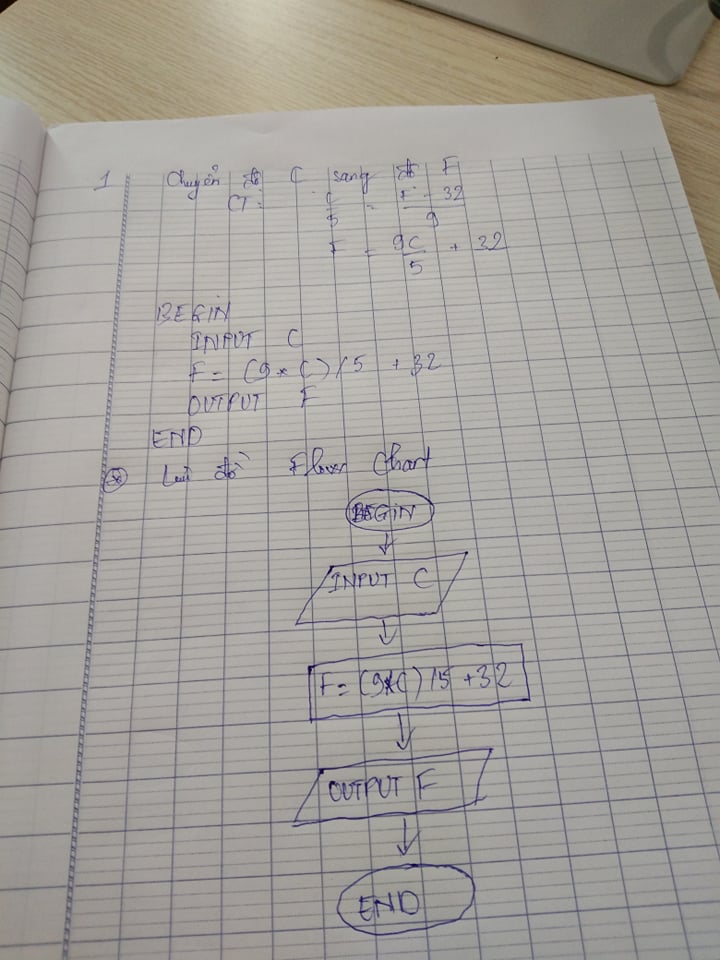 1 Chuyển độ C sang độ F
CT: C/5 = F - 32/9
F = 9C/5 + 32
BEGIN
INPUT C
F = (9*C)/5 + 32
OUTPUT F
END
* Lưu đồ Flow Chart
BEGIN
INPUT C
F = (9*C)/5 + 32
OUTPUT F
END